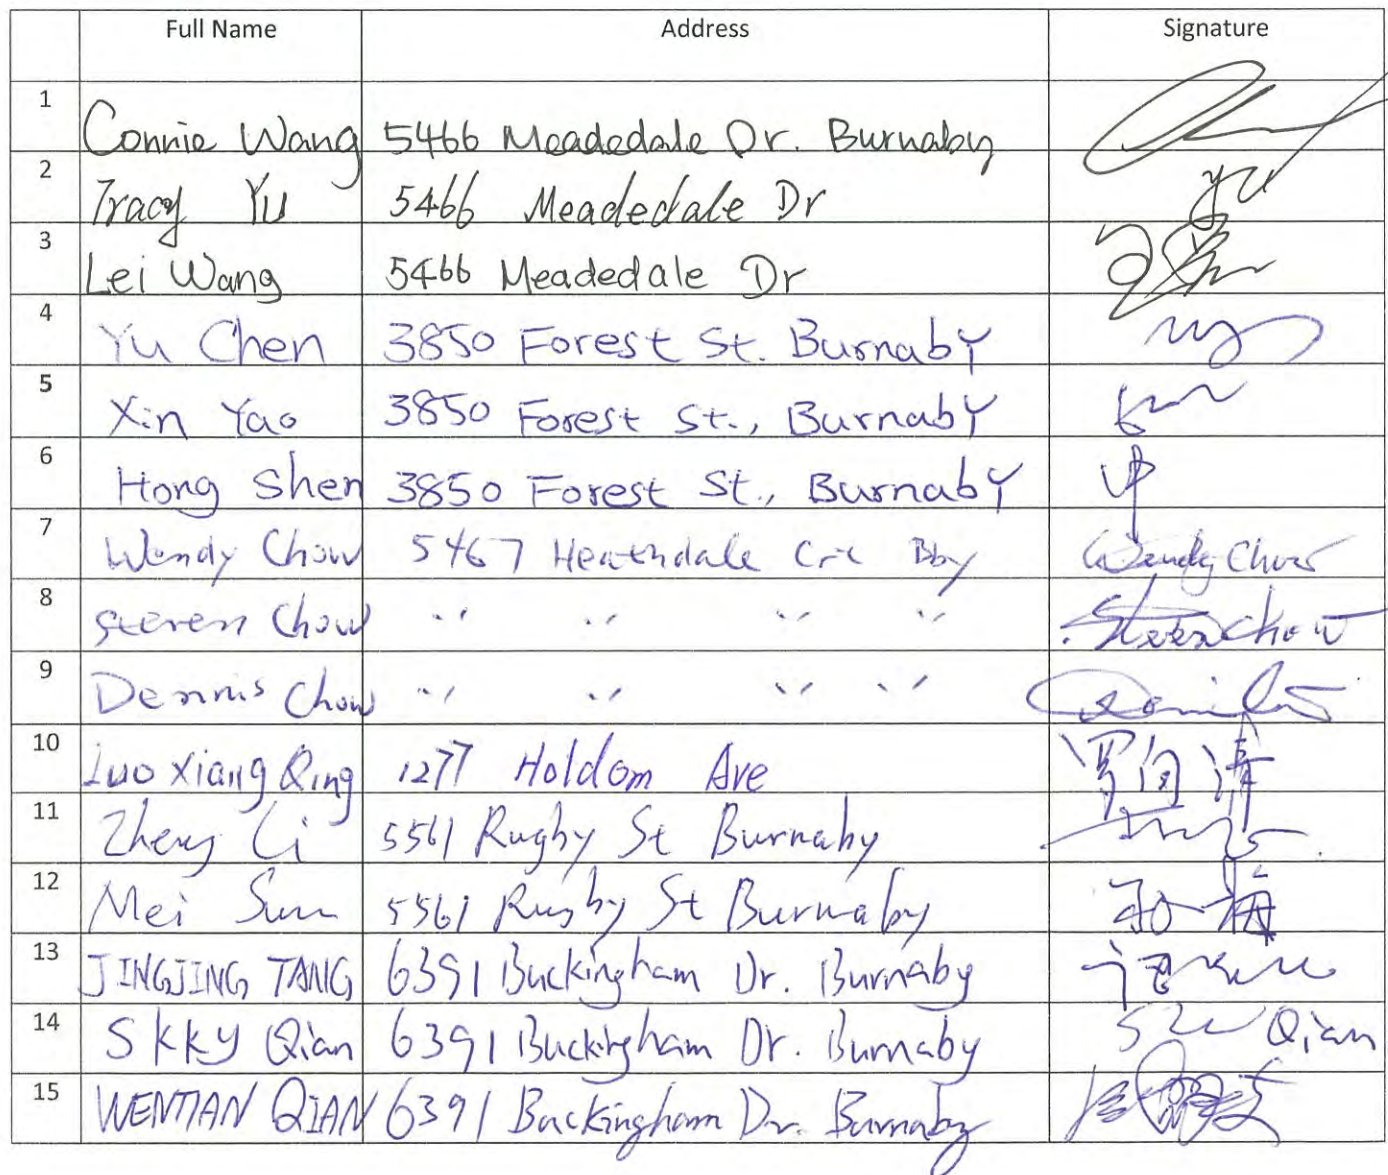 Full Name Address Signature
1 Connie Wang 5466 Meadedale Dr. Burnaby
2 Tracy Yu 5466 Meadedale Dr Yu
3 Lei Wang 5466 Meadedale Dr
4 Yu Chen 3850 Forest St. Burnaby
5 Xin Yao 3850 Forest St., Burnaby
6 Hong Shen 3850 Forest St., Burnaby
7 Wendy Chow 5467 Heathdale Crt Bby Wendy Chow
8 Steven Chow " " " " Steven Chow
9 Dennis Chow " " " "
10 Luo Xiang Qing 1277 Holdom Ave 罗向清
11 Zheng Li 5561 Rugby St Burnaby
12 Mei Sun 5561 Rugby St Burnaby 孙梅
13 JINGJING TANG 6391 Buckingham Dr. Burnaby
14 Skky Qian 6391 Buckingham Dr. Burnaby Qian
15 WENTIAN QIAN 6391 Buckingham Dr. Burnaby